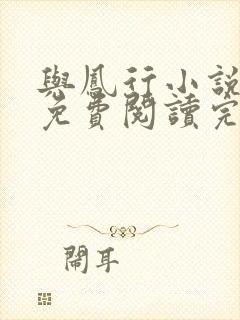 與鳳行小說
免費閱讀完
鬧耳